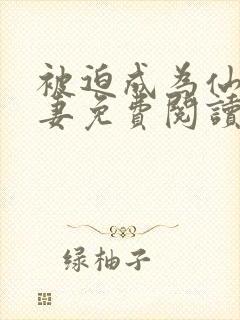 被迫成为仙
妻免費閱讀
绿柚子